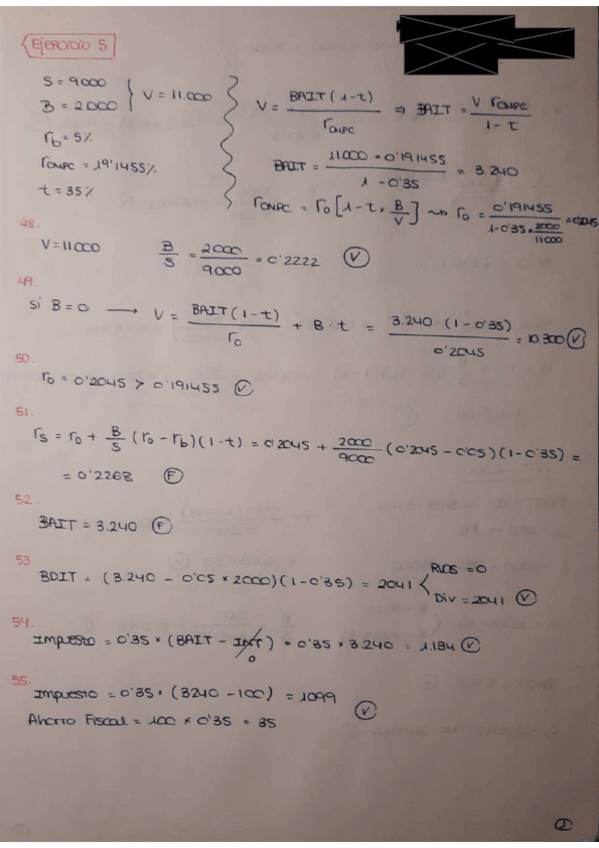 Ejercicio 5
S = 9000
B = 2000
V = 11.000
r_b = 5%
r_CMPC = 19'1455%
t = 35%
V = BAIT (1-t) / r_CMPC ⇒ BAIT = V · r_CMPC / 1 - t
BAIT = 11000 * 0'191455 / 1 - 0'35 = 3.240
r_CMPC = r_0 [1 - t * B/V] ⇝ r_0 = 0'191455 / 1 - 0'35 * 2000/11000 = 0'2045
48.
V = 11000 B/S = 2000/9000 = 0'2222 (V)
49.
Si B = 0 ⟶ V = BAIT (1-t) / r_0 + B · t = 3.240 · (1 - 0'35) / 0'2045 = 10.300 (V)
50.
r_0 = 0'2045 > 0'191455 (V)
51.
r_s = r_0 + B/S (r_0 - r_b) (1-t) = 0'2045 + 2000/9000 (0'2045 - 0'05) (1 - 0'35) =
= 0'2268 (F)
52.
BAIT = 3.240 (F)
53.
BDIT = (3.240 - 0'05 * 2000) (1 - 0'35) = 2041
RVOS = 0
Div = 2041 (V)
54.
Impuesto = 0'35 * (BAIT - INT) = 0'35 * 3.240 = 1.134 (V)
0
55.
Impuesto = 0'35 * (3240 - 100) = 1099
Ahorro Fiscal = 100 * 0'35 = 35 (V)